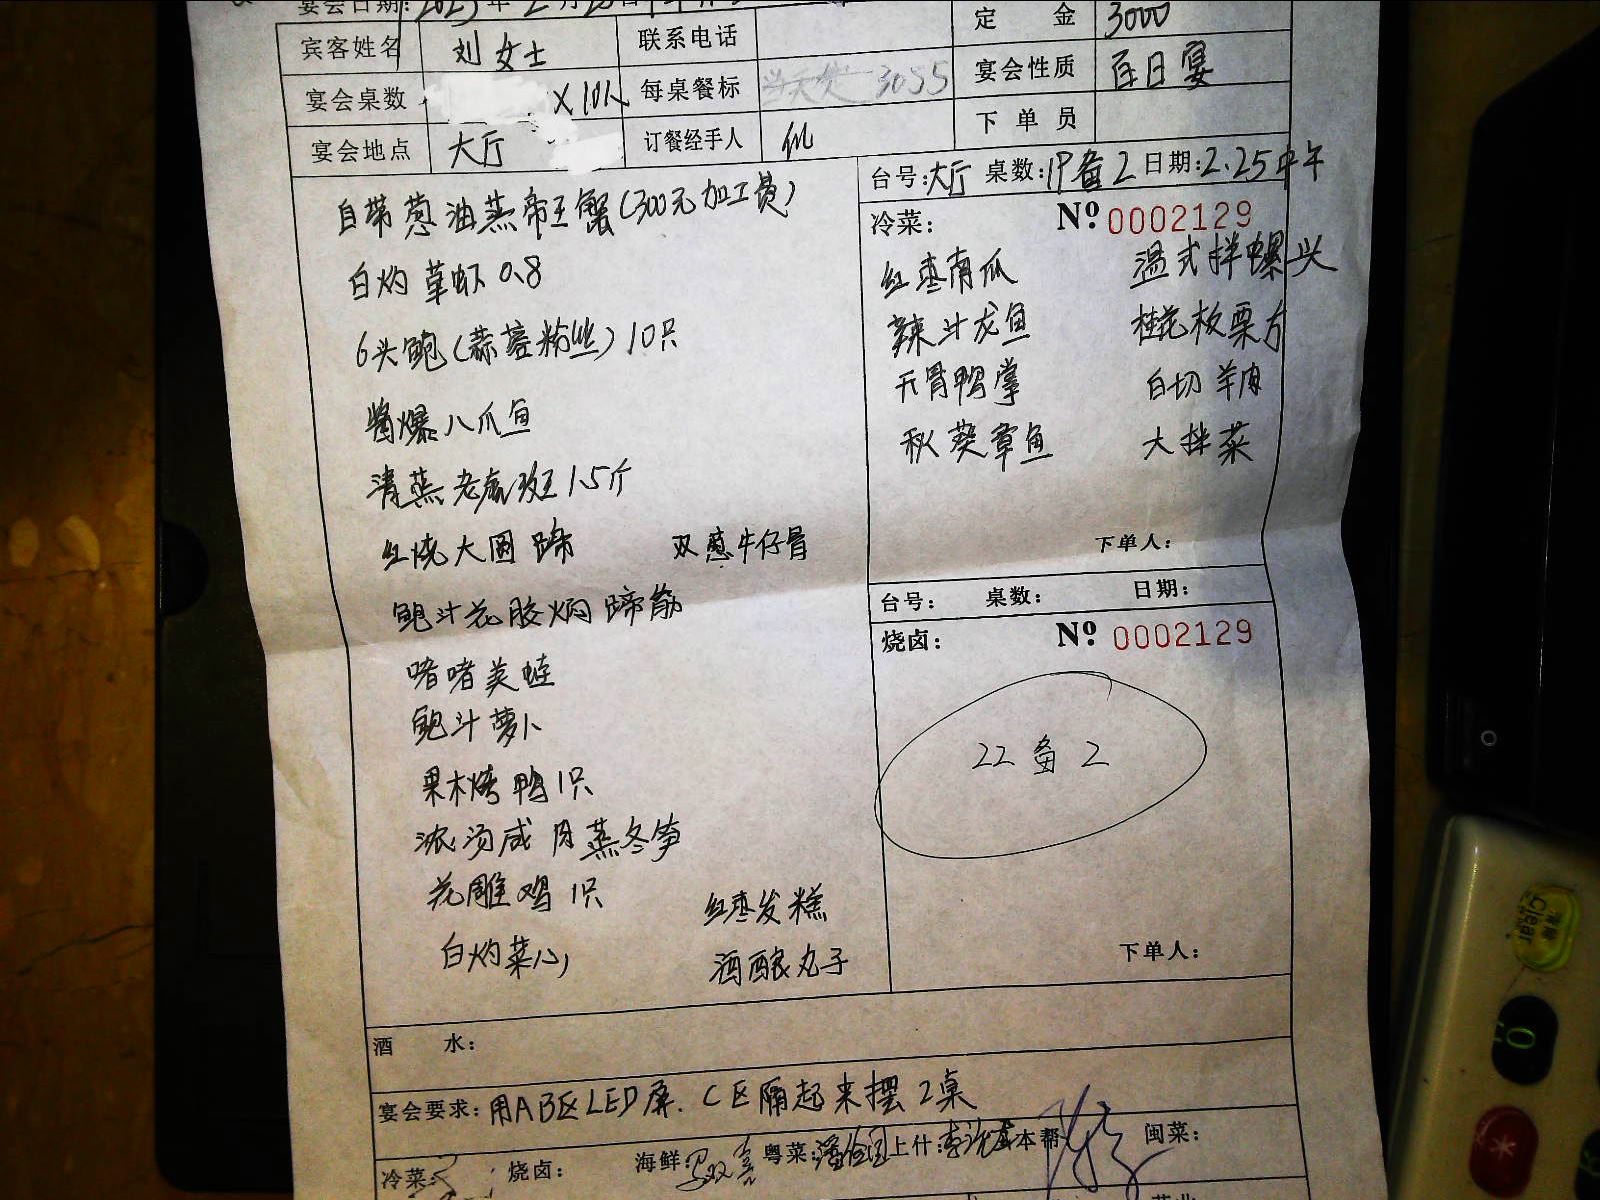 宴会日期: 2025年2月25日
定 金 3000
宾客姓名 刘女士 联系电话
宴会桌数 X10人 每桌餐标 3055 宴会性质 百日宴
宴会地点 大厅 订餐经手人 下单员
台号:大厅 桌数: 备2 日期:2.25中午
自带葱油蒸帝王蟹(300元加工费)
白灼草虾0.8
6头鲍(蒜蓉粉丝)10只
酱爆八爪鱼
清蒸老虎斑1.5斤
红烧大圆蹄 双葱牛仔骨
鲍汁花胶焖蹄筋
啫啫美蛙
鲍汁萝卜
果木烤鸭1只
浓汤咸肉蒸冬笋
花雕鸡1只 红枣发糕
白灼菜心 酒酿丸子
冷菜: Nº 0002129
红枣南瓜 温式拌螺头
辣汁龙鱼 桂花板栗方
无骨鸭掌 白切羊肉
秋葵章鱼 大拌菜
下单人:
台号: 桌数: 日期:
烧卤: Nº 0002129
22备2
下单人:
酒 水:
宴会要求:用ABC区LED屏.C区隔起来摆2桌
冷菜: 烧卤: 海鲜: 粤菜: 上什: 本帮 闽菜: